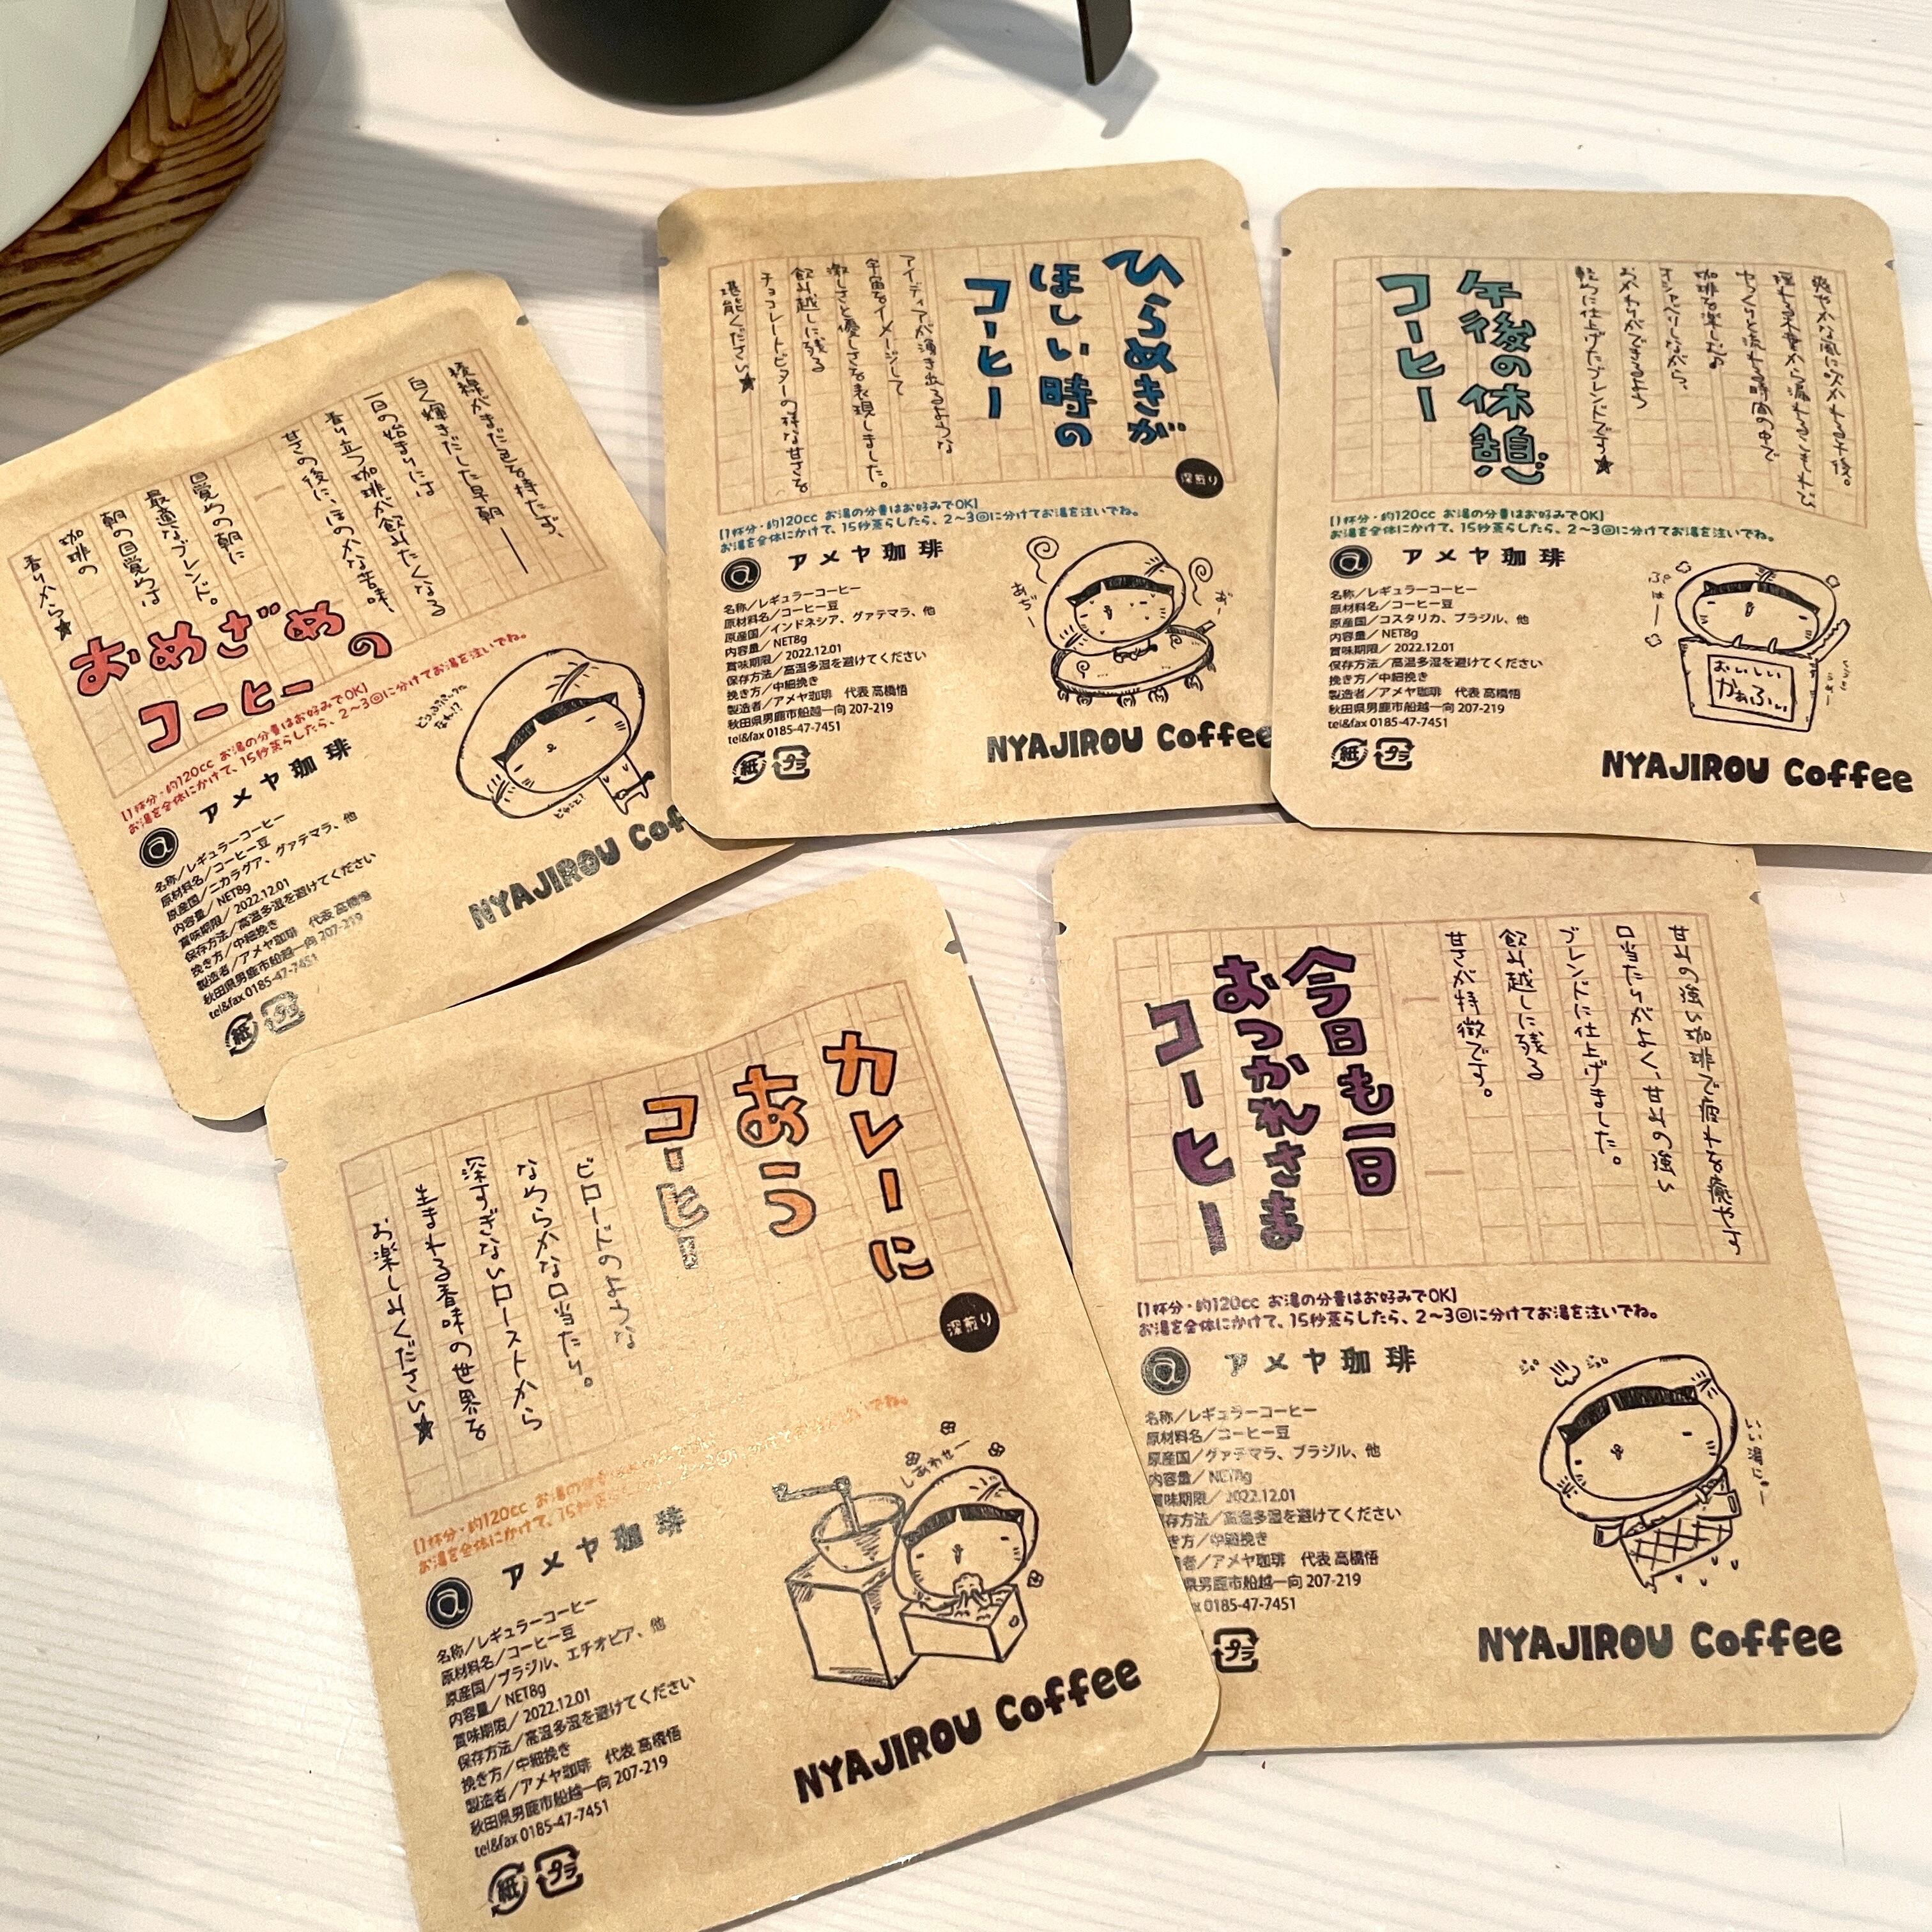 稜線がまだ色を持たず、
白く輝きだした早朝──
一日の始まりには
香り立つ珈琲が飲みたくなる
甘さの後に、ほのかな苦味、
目覚めの朝に
最適なブレンド。
朝の目覚めは
珈琲の
香りから★
おめざめの
コーヒー
【1杯分・約120cc お湯の分量はお好みでOK】
お湯を全体にかけて、15秒蒸らしたら、2〜3回に分けてお湯を注いでね。
アメヤ珈琲
名称／レギュラーコーヒー
原材料名／コーヒー豆
原産国／ニカラグア、グァテマラ、他
内容量／NET8g
賞味期限／2022.12.01
保存方法／高温多湿を避けてください
挽き方／中細挽き
製造者／アメヤ珈琲 代表 高橋悟
秋田県男鹿市船越一向 207-219
tel&fax 0185-47-7451
紙 プラ
NYAJIROU Cof
ひらめきが
ほしい時の
コーヒー
アイディアが湧き出るような
宇宙をイメージして
激しさと優しさを表現しました。
飲み越しに残る
チョコレートビターの様な甘さを
堪能ください★
深煎り
【1杯分・約120cc お湯の分量はお好みでOK】
お湯を全体にかけて、15秒蒸らしたら、2〜3回に分けてお湯を注いでね。
アメヤ珈琲
名称／レギュラーコーヒー
原材料名／コーヒー豆
原産国／インドネシア、グァテマラ、他
内容量／NET8g
賞味期限／2022.12.01
保存方法／高温多湿を避けてください
挽き方／中細挽き
製造者／アメヤ珈琲 代表 高橋悟
秋田県男鹿市船越一向 207-219
tel&fax 0185-47-7451
紙 プラ
NYAJIROU Coffee
爽やかな風に吹かれる午後。
ゆっくりと流れる時間の中で
珈琲を楽しむの
オシャベリしながら、
おかわりができるよう
軽めに仕上げたブレンドです★
午後の休憩
コーヒー
【1杯分・約120cc お湯の分量はお好みでOK】
お湯を全体にかけて、15秒蒸らしたら、2〜3回に分けてお湯を注いでね。
アメヤ珈琲
名称／レギュラーコーヒー
原材料名／コーヒー豆
原産国／コスタリカ、ブラジル、他
内容量／NET8g
賞味期限／2022.12.01
保存方法／高温多湿を避けてください
挽き方／中細挽き
製造者／アメヤ珈琲 代表 高橋悟
秋田県男鹿市船越一向 207-219
tel&fax 0185-47-7451
紙 プラ
ぷはー
おいしい
かふぇ
NYAJIROU Coffee
カレーに
あう
コーヒー
ビロードのような
なめらかな口当たり。
深すぎないローストから
生まれる香味の世界を
お楽しみください★
深煎り
【1杯分・約120cc お湯の
お湯を全体にかけて、15秒蒸
注いでね。
しあわせー
アメヤ珈琲
名称／レギュラーコーヒー
原材料名／コーヒー豆
原産国／ブラジル、エチオピア、他
内容量／NET8g
賞味期限／2022.12.01
保存方法／高温多湿を避けてください
挽き方／中細挽き
製造者／アメヤ珈琲 代表 高橋悟
秋田県男鹿市船越一向 207-219
tel&fax 0185-47-7451
紙 プラ
NYAJIROU Coffee
甘みの強い珈琲で疲れを癒やす
口当たりがよく、甘みの強い
ブレンドに仕上げました。
飲み越しに残る
甘さが特徴です。
今日も一日
おつかれさま
コーヒー
【1杯分・約120cc お湯の分量はお好みでOK】
お湯を全体にかけて、15秒蒸らしたら、2〜3回に分けてお湯を注いでね。
アメヤ珈琲
名称／レギュラーコーヒー
原材料名／コーヒー豆
原産国／グァテマラ、ブラジル、他
内容量／NET8g
賞味期限／2022.12.01
存方法／高温多湿を避けてください
き方／中細挽き
者／アメヤ珈琲 代表 高橋悟
県男鹿市船越一向 207-219
x 0185-47-7451
プラ
いい湯にゃー
NYAJIROU Coffee